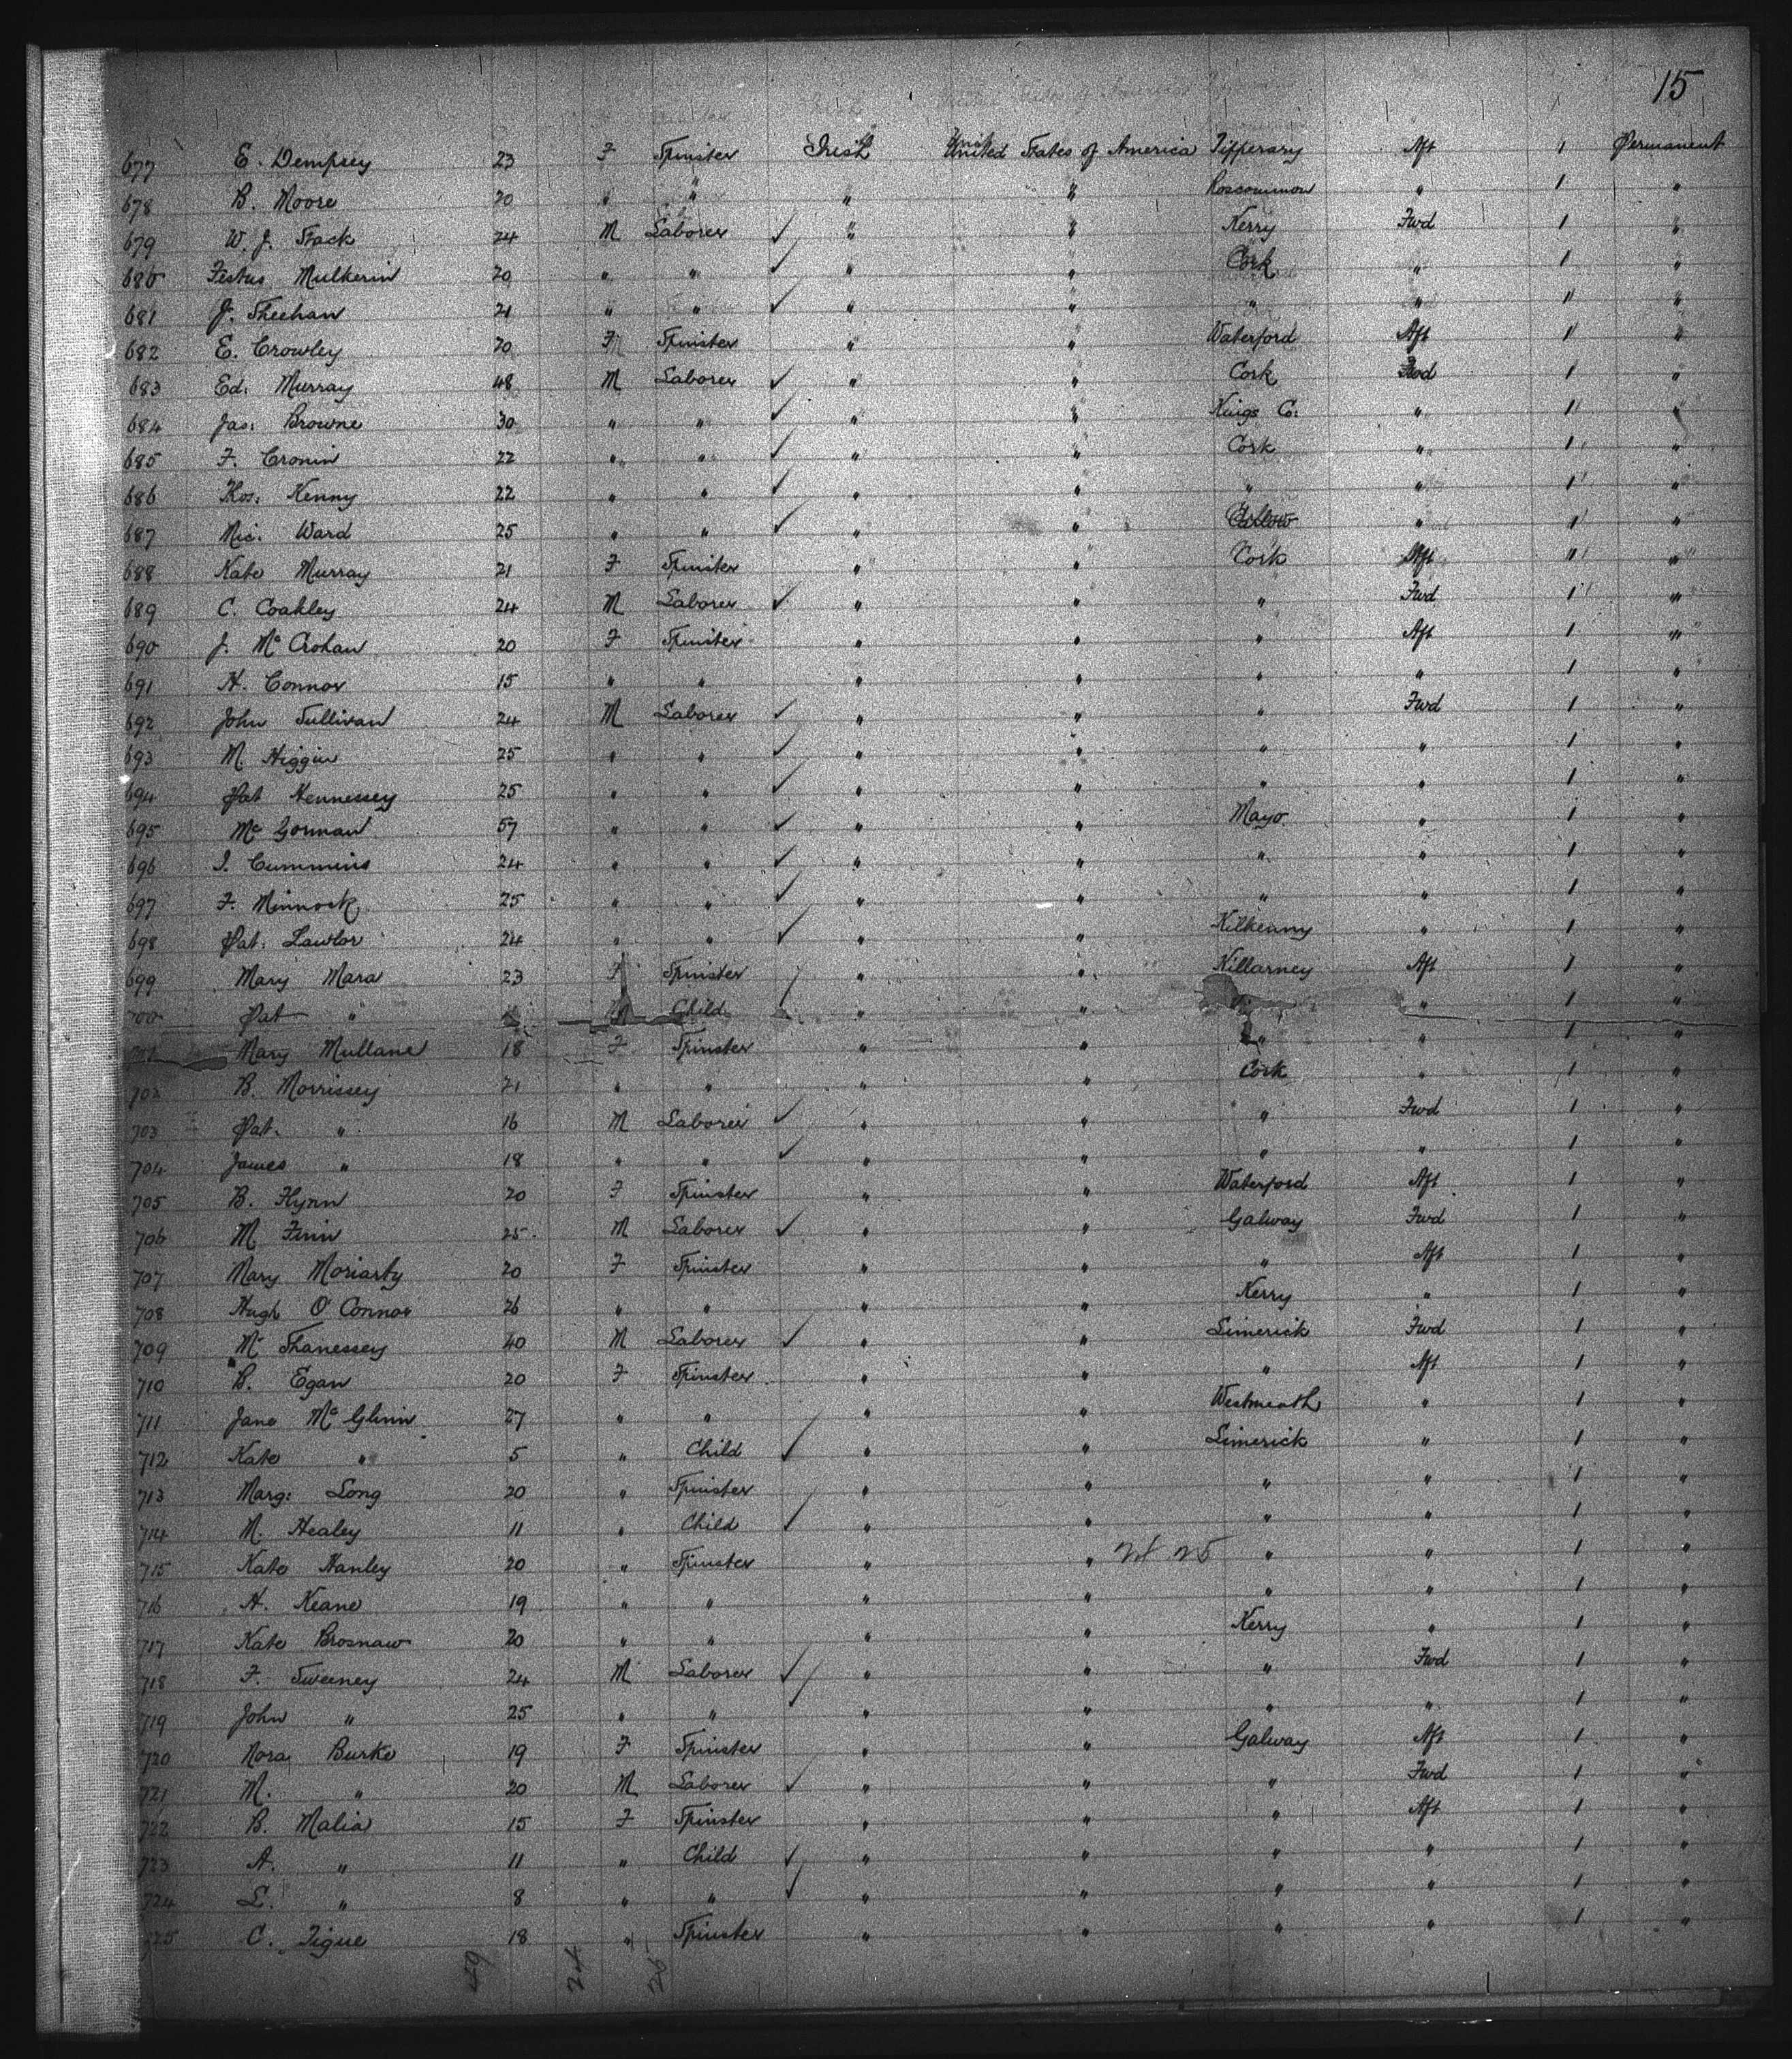 15
677 E. Dempsey 23 F Spinster Irish United States of America Tipperary Aft 1 Permanent
678 B. Moore 20 " " " " Roscommon " 1 "
679 W. J. Stack 24 M Laborer ✓ " " Kerry Fwd 1 "
680 Festus Mulkerin 20 " " ✓ " " Cork " 1 "
681 J. Sheehan 21 " " ✓ " " " " 1 "
682 E. Crowley 20 F Spinster " " Waterford Aft 1 "
683 Ed: Murray 48 M Laborer ✓ " " Cork Fwd 1 "
684 Jas: Browne 30 " " ✓ " " Kings Co: " 1 "
685 F. Cronin 22 " " ✓ " " Cork " 1 "
686 Thos: Kenny 22 " " ✓ " " " " 1 "
687 Mic. Ward 25 " " ✓ " " Carlow " 1 "
688 Kate Murray 21 F Spinster " " Cork Aft 1 "
689 C. Coakley 24 M Laborer ✓ " " " Fwd 1 "
690 J. McCrohan 20 F Spinster " " " Aft 1 "
691 H. Connor 15 " " " " " " 1 "
692 John Sullivan 24 M Laborer ✓ " " " Fwd 1 "
693 M. Higgin 25 " " ✓ " " " " 1 "
694 Pat Hennessey 25 " " ✓ " " " " 1 "
695 Mc Gorman 57 " " ✓ " " Mayo " 1 "
696 J. Cummins 24 " " ✓ " " " " 1 "
697 F. Minnock 25 " " ✓ " " " " 1 "
698 Pat. Lawlor 24 " " ✓ " " Kilkenny " 1 "
699 Mary Mara 23 F Spinster " " Killarney Aft 1 "
700 Pat " M Child " " " " 1 "
701 Mary Mullane 18 F Spinster " " " " 1 "
702 B. Morrissey 21 " " " " Cork " 1 "
703 Pat. " 16 M Laborer ✓ " " " Fwd 1 "
704 James " 18 " " ✓ " " " " 1 "
705 B. Flynn 20 F Spinster " " Waterford Aft 1 "
706 M Finn 25 M Laborer ✓ " " Galway Fwd 1 "
707 Mary Moriarty 20 F Spinster " " " Aft 1 "
708 Hugh O'Connor 26 " " " " Kerry " 1 "
709 M Shanessey 40 M Laborer ✓ " " Limerick Fwd 1 "
710 B. Egan 20 F Spinster " " " Aft 1 "
711 Jane McGlinn 27 " " " " Westmeath " 1 "
712 Kate " 5 " Child ✓ " " Limerick " 1 "
713 Marg: Long 20 " Spinster " " " " 1 "
714 M. Healey 11 " Child ✓ " " " " 1 "
715 Kate Hanley 20 " Spinster " " " " 1 "
716 H. Keane 19 " " " " " " 1 "
717 Kate Brosnan 20 " " " " Kerry " 1 "
718 F. Sweeney 24 M Laborer ✓ " " " Fwd 1 "
719 John " 25 " " ✓ " " " " 1 "
720 Nora Burke 19 F Spinster " " Galway Aft 1 "
721 M. " 20 M Laborer ✓ " " " Fwd 1 "
722 B. Malia 15 F Spinster " " " Aft 1 "
723 A. " 11 " Child ✓ " " " " 1 "
724 L. " 8 " " ✓ " " " " 1 "
725 C. Tigue 18 " Spinster " " " " 1 "
49 24 25